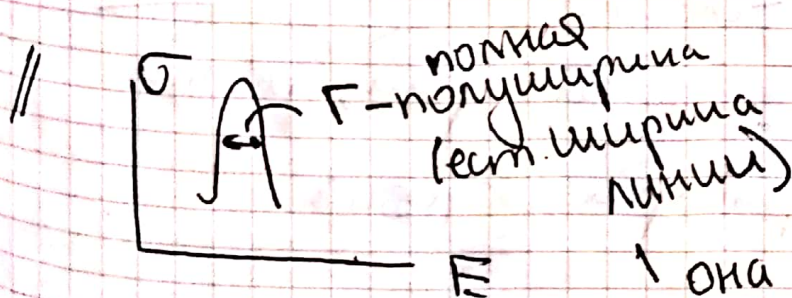 //
σ
полная
Γ - полуширина
(ест. ширина
линии)
E
она